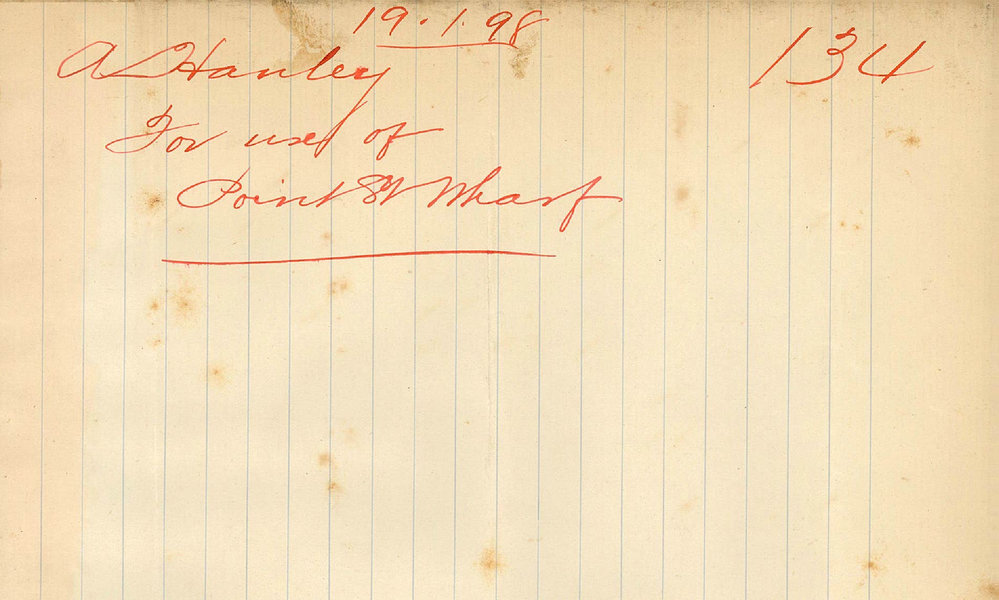 19.1.98
134
A Hanley
For use of
Point St Wharf